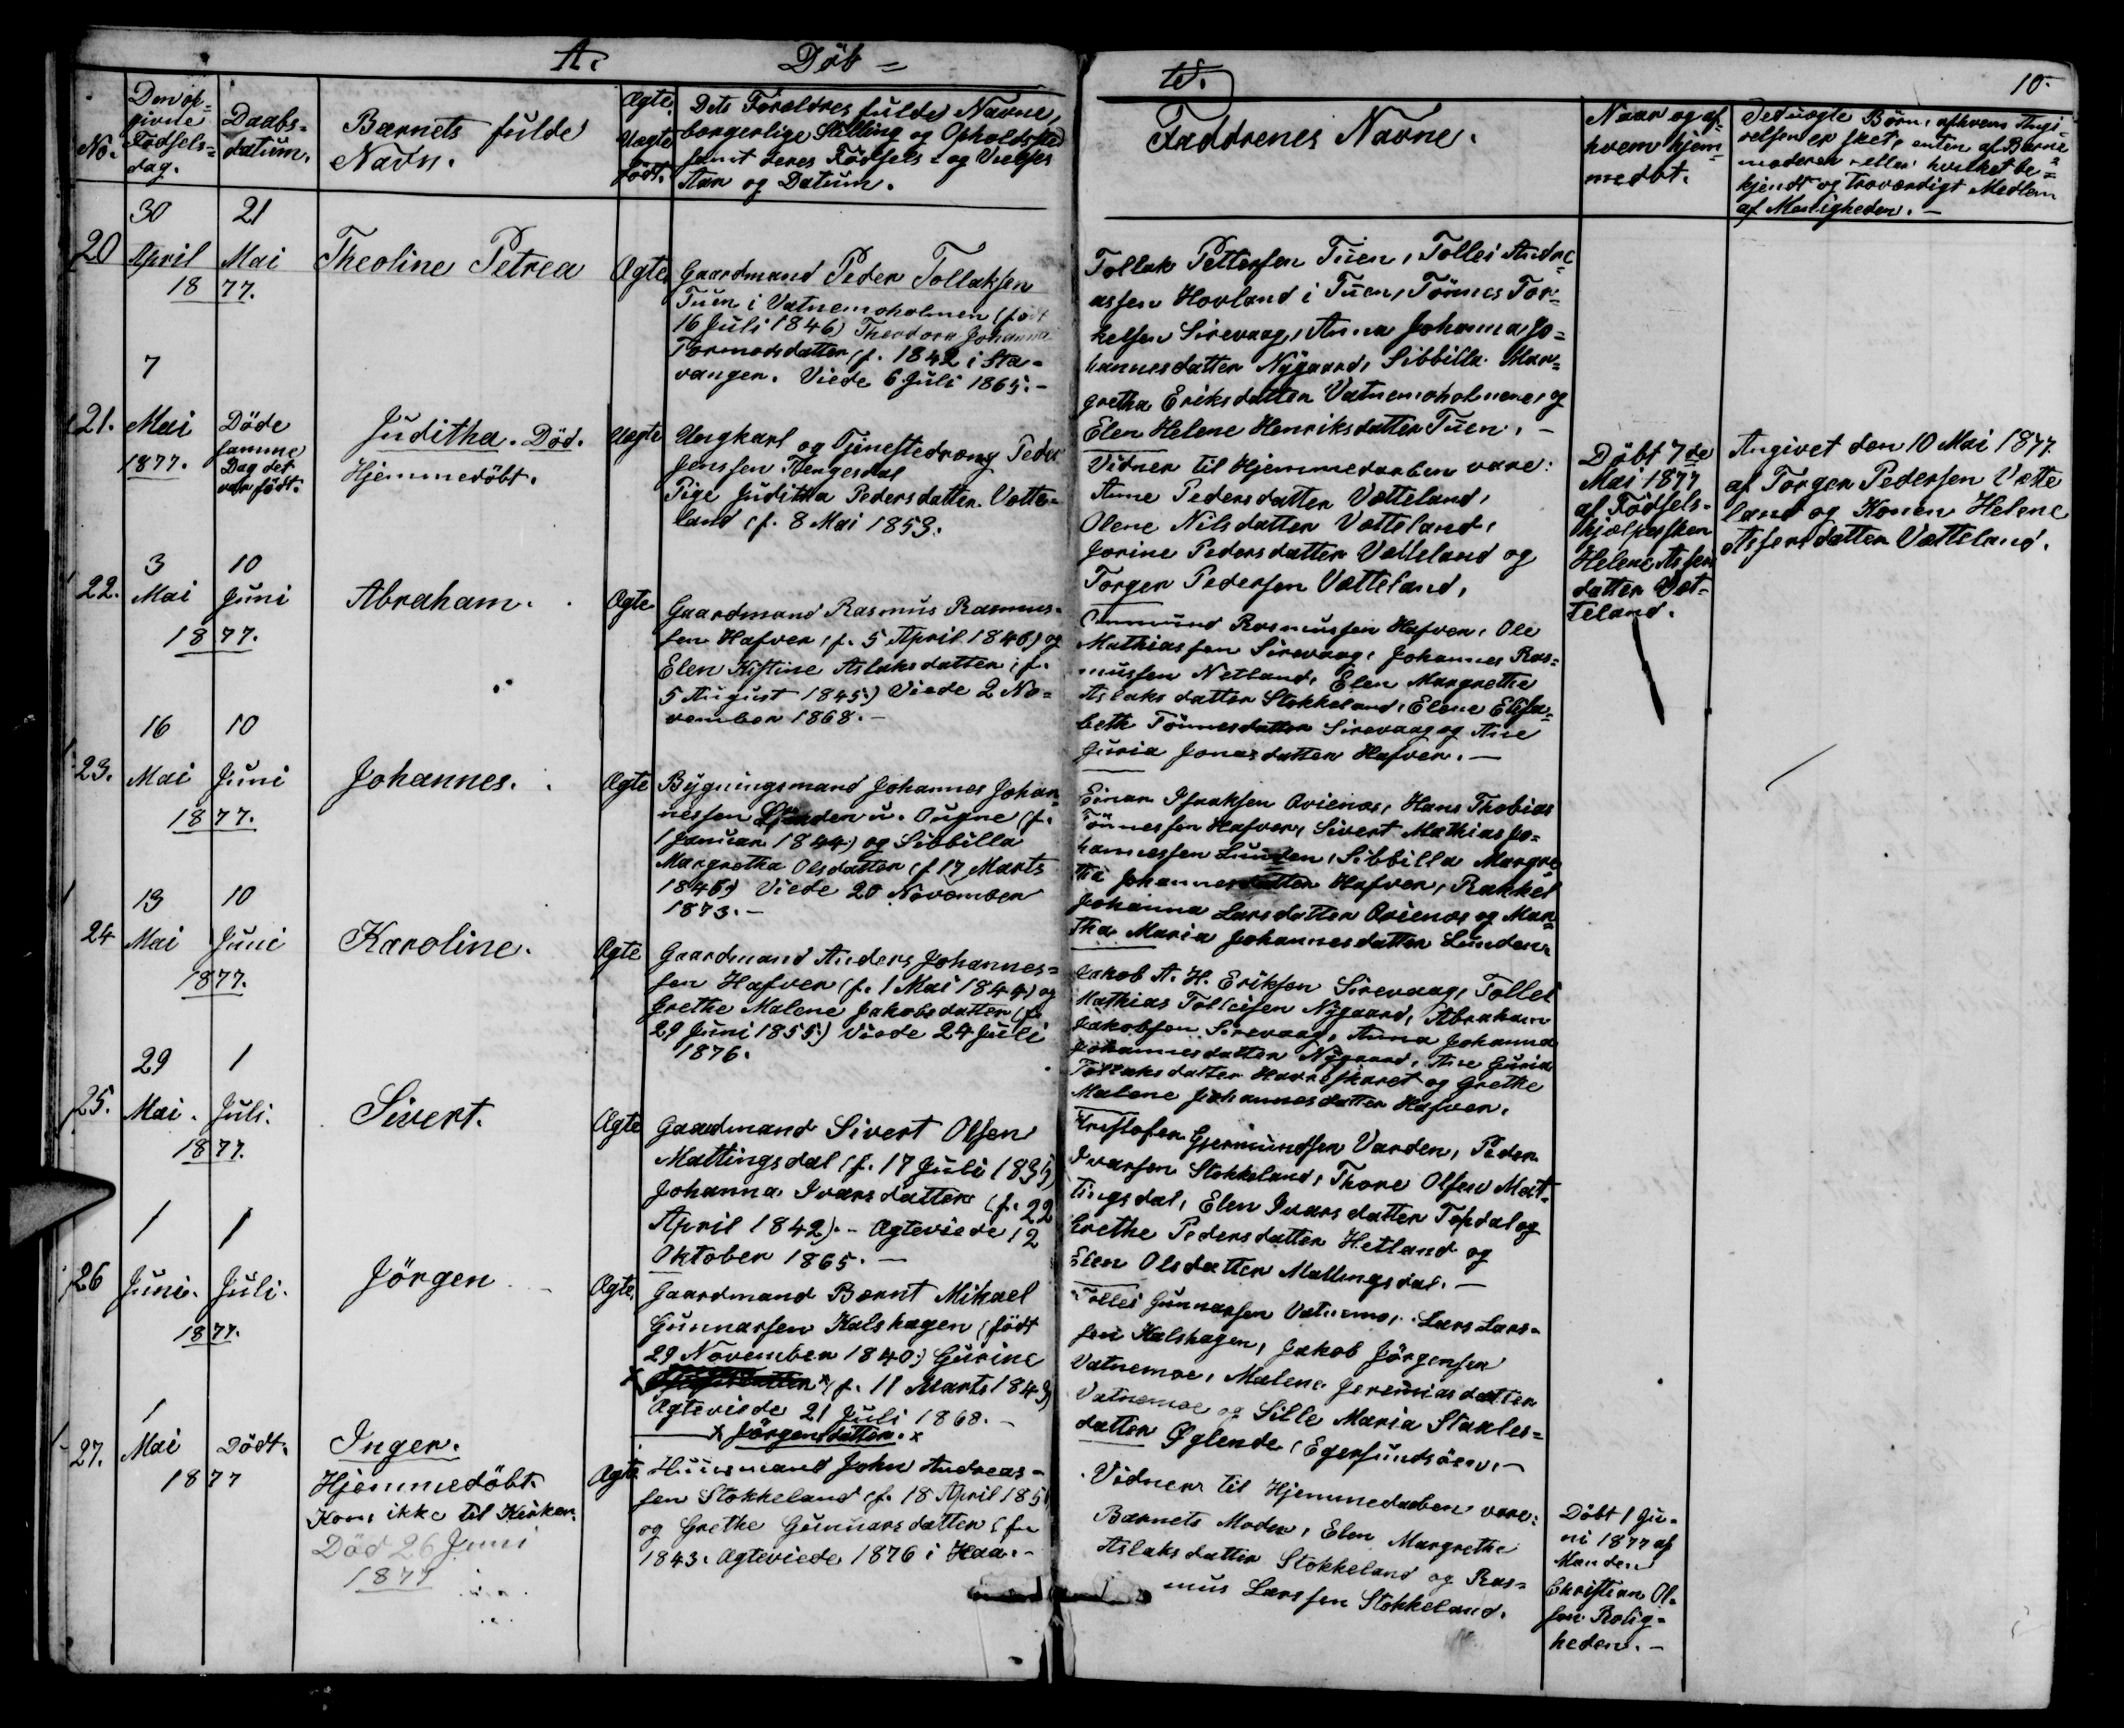 A. Döb-
te. 10.
No.
Den op-
givne
Födsels-
dag.
Daabs-
datum.
Barnets fulde
Navn.
Ægte.
Uægte
født.
Dets Forældres fulde Navne,
borgerlige Stilling og Opholdssted
samt deres Födsels- og Vielses
Aar og Datum.
Faddrenes Navne.
Naar og af
hvem hjem-
medöbt.
Ved uægte Börn, af hvem Angi-
velsen er skeet, enten af Barne-
moderen eller hvilket be-
kjendt og troværdigt Medlem
af Menigheden.-
20
30 April 1877.
21 Mai
Theoline Petrea
Ægte
Gaardmand Peder Tollaksen
Tuen i Vatnemoholmen (født
16 Juli 1846) Theodora Johanna
Tormodsdatter (f. 1842 i Sta-
vanger. Viede 6 Juli 1865.-
Tollak Pettersen Tuen, Tollei Andre-
assen Hovland i Tuen, Tönnes Tor-
kelsen Sirevaag, Anna Johanna Jo-
hannesdatter Nÿgaard, Sibbilla Mar-
gretha Eriksdatter Vatnemoholmene, og
Elen Helene Henriksdatter Tuen.-
21.
7 Mai 1877.
Döde
samme
Dag det
var født.
Juditha. Död.
Hjemmedöbt.
Uægte
Ungkarl og Tjenestedreng Peder
Jenssen Tengesdal
Pige Juditha Pedersdatter Vætte-
land (f. 8 Mai 1853.
Vidner til Hjemmedaaben vare:
Anne Pedersdatter Vætteland,
Olene Nilsdatter Vætteland,
Jorine Pedersdatter Vætteland og
Torger Pedersen Vætteland,
Döbt 7de
Mai 1877
af Födsels-
hjælpersken
Helene Assers
datter Væt-
teland.
Angivet den 10 Mai 1877.
af Torger Pedersen Vætte
land og Konen Helene
Assersdatter Vætteland.
22.
3 Mai 1877.
10 Juni
Abraham.
Ægte
Gaardmand Rasmus Rasmus-
sen Hafver (f. 5 April 1846) og
Elen Kistine Aslaksdatter (f.
5 August 1845.) Viede 2 No-
vember 1868.-
Ommund Rasmussen Hafver, Ole
Mathiassen Sirevaag, Johannes Ras-
mussen Netland, Elen Margrethe
Aslaksdatter Stokkeland, Elene Elisa-
beth Tönnesdatter Sirevaag og Ane
Guria Jonasdatter Hafver.-
23.
16 Mai 1877.
10 Juni
Johannes.
Ægte
Bÿgningsmand Johannes Johan-
nessen Lunden u. Ougne (f.
1 Januar 1844) og Sibbilla
Margretha Olsdatter (f. 17 Marts
1846.) Viede 20 November
1873.-
Einar Isaaksen Qvienos, Hans Thobias
Tönnessen Hafver, Sivert Mathias Jo-
hannessen Lunden, Sibbilla Margre
tha Johannesdatter Hafver, Rakkel
Johanna Larsdatter Qvienos og Mar-
tha Maria Johannesdatter Lunden.
24
13 Mai 1877.
10 Juni
Karoline.
Ægte
Gaardmand Anders Johannes-
sen Hafver (f. 1 Mai 1844) og
Grethe Malene Jakobsdatter (f.
29 Juni 1855.) Viede 24 Juli
1876.
Jakob A. H. Eriksen Sirevaag, Tollei
Mathias Tolleisen Nÿgaard, Abraham
Jakobsen Sirevaag, Anna Johanna
Johannesdatter Nÿgaard, Ane Guria
Tollaksdatter Havreskaret og Grethe
Malene Johannesdatter Hafver.
25.
29 Mai. 1877.
1 Juli.
Sivert.
Ægte
Gaardmand Sivert Olsen
Mattingsdal (f. 17 Juli 1835)
Johanna Ivarsdatter (f. 22
April 1842).- Ægteviede 12
Oktober 1865.-
Kristofer Gjermundsen Varden, Peder
Ivarsen Stokkeland, Thore Olsen Mat-
tingsdal, Elen Ivarsdatter Topdal og
Grethe Pedersdatter Hetland og
Elen Olsdatter Mattingsdal.-
26
1 Juni. 1877.
1 Juli.
Jörgen
Ægte.
Gaardmand Bærnt Mikael
Gunnarsen Kalshagen (født
29 November 1840.) Gurine
x f. 11 Marts 1843)
Ægteviede 21 Juli 1868.-
x Jörgensdatter. x
Tollei Gunnarsen Vatnemo, Lars Lars-
sen Kalshagen, Jakob Jörgensen
Vatnemoe, Malene Jeremiasdatter
Vatnemoe og Sille Maria Staales-
datter Øglende, Egersundsöen.-
27.
1 Mai 1877
Dödt.
Inger.
Hjemmedöbt.
Kom ikke til Kirken.
Död 26 Juni
1877
Ægte.
Huusmand John Andreas-
sen Stokkeland (f. 18 April 1851
og Grethe Gunnarsdatter (f.
1843. Ægteviede 1876 i Haa.-
Vidner til Hjemmedaaben vare:
Barnets Moder, Elen Margrethe
Aslaksdatter Stokkeland og Ras-
mus Larssen Stokkeland.
Döbt 1 Ju-
ni 1877 af
Manden
Christian Ol-
sen Rolig-
heden.-